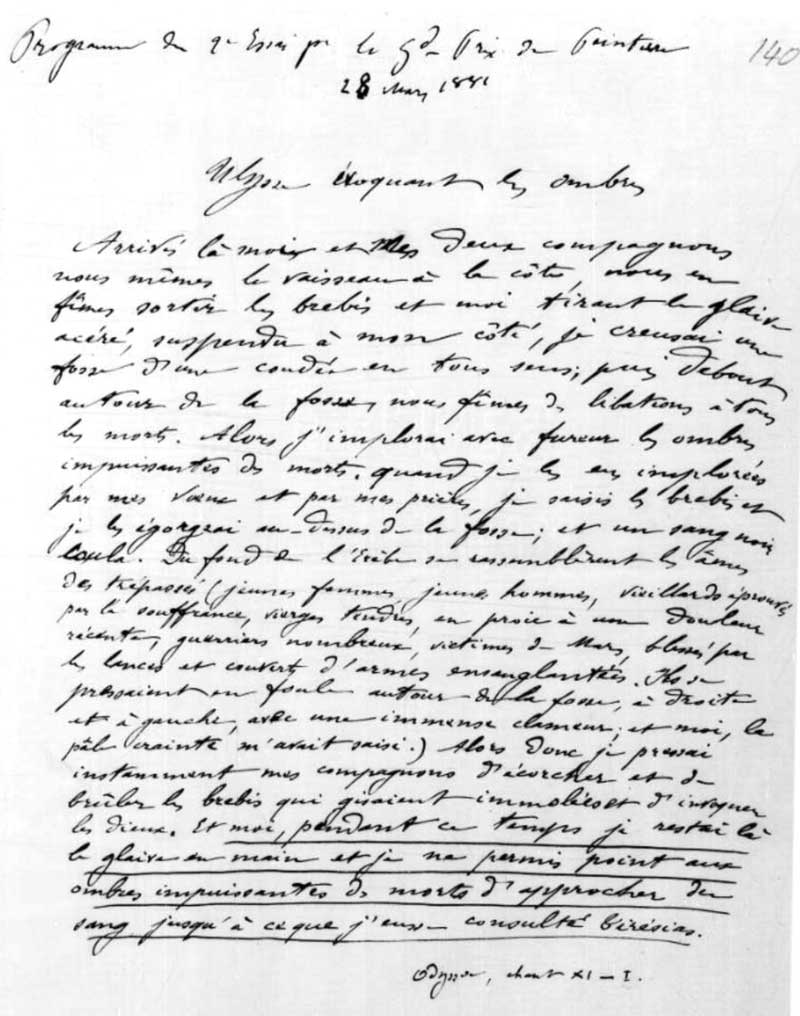 Programme du 2e Essai pr le Gd Prix de Peinture
140
28 Mars 1881
Ulysse évoquant les ombres
Arrivés là moi et mes deux compagnons
nous mêmes le vaisseau à la côte, nous en
fîmes sortir les brebis et moi tirant le glaive
acéré, suspendu à mon côté, je creusai une
fosse d'une coudée en tous sens; puis debout
autour de la fosse, nous fîmes des libations à tous
les morts. Alors j'implorai avec fureur les ombres
impuissantes des morts. quand je les eus implorées
par mes vœux et par mes prières, je saisis les brebis et
je les égorgeai au-dessus de la fosse; et un sang noir
coula. Du fond de l'Erèbe se rassemblèrent les âmes
des trépassés (jeunes femmes jeunes hommes, vieillards éprouvés
par la souffrance, vierges tendres, en proie à une douleur
récente, guerriers nombreux, victimes de Mars, blessés par
les lances et couverts d'armes ensanglantées. Ils se
pressaient en foule autour de la fosse, à droite
et à gauche, avec une immense clameur; et moi, la
pâle crainte m'avait saisi.) Alors donc je pressai
instamment mes compagnons d'écorcher et de
brûler les brebis qui gisaient immolées et d'invoquer
les dieux. Et moi, pendant ce temps je restai là
le glaive en main et je ne permis point aux
ombres impuissantes des morts d'approcher du
sang jusqu'à ce que j'eusse consulté Tirésias.
Odyssée, chant XI – I.